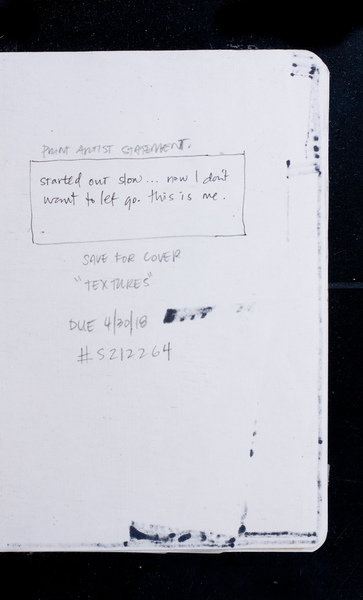 PRINT ARTIST STATEMENT.
started out slow... now I don't
want to let go. this is me.
SAVE FOR COVER
"TEXTURES"
DUE 4/30/18
#S212264